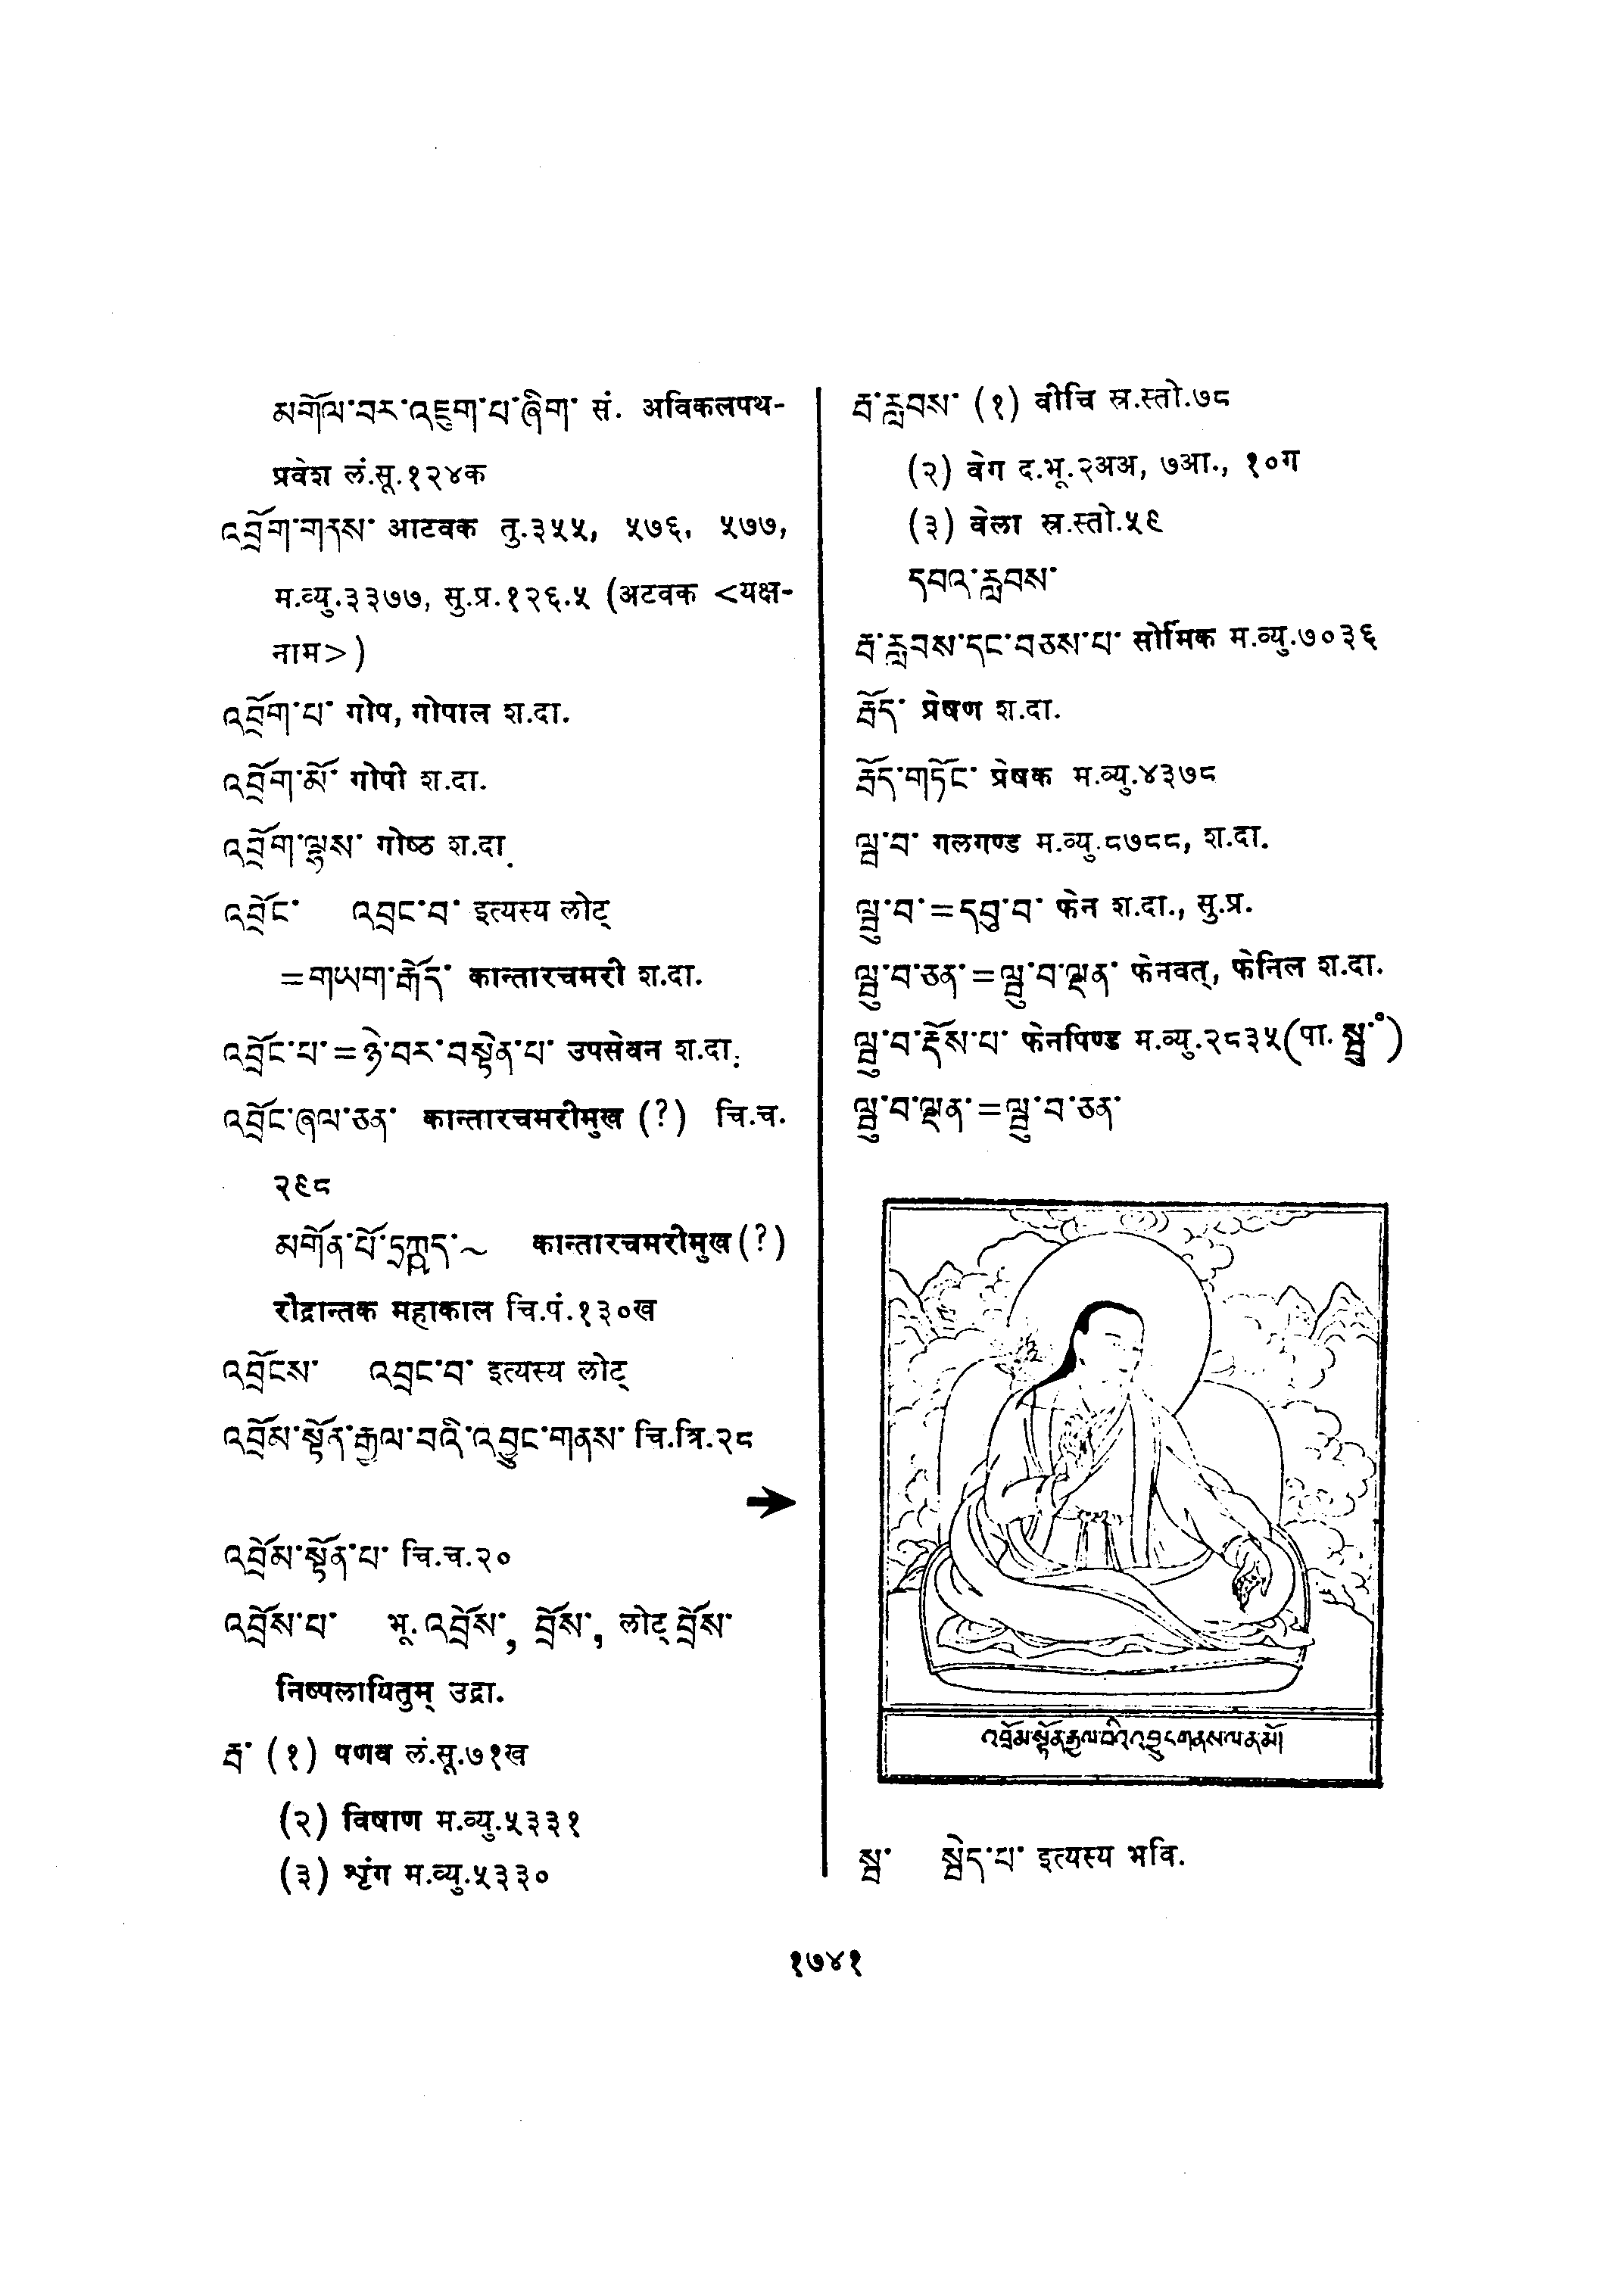 མགོལ་བར་འཇུག་པ་ཞིག་ सं. अविकलपथ-
प्रवेश लं.सू.१२४क
འབྲོག་གནས་ आटवक तु.३५५, ५७६, ५७७,
म.व्यु.३३७७, सु.प्र.१२६.५ (अटवक <यक्ष-
नाम>)
འབྲོག་པ་ गोप, गोपाल श.दा.
འབྲོག་མོ་ गोपी श.दा.
འབྲོག་ལྷས་ गोष्ठ श.दा.
འབྲོང་ འབྲང་བ་ इत्यस्य लोट्
=གཡག་རྒོད་ कान्तारचमरी श.दा.
འབྲོང་པ་=ཉེ་བར་བསྟེན་པ་ उपसेवन श.दा.
འབྲོང་ཞལ་ཅན་ कान्तारचमरीमुख (?) चि.च.
२९८
མགོན་པོ་དྲཀྵད་~ कान्तारचमरीमुख (?)
रौद्रान्तक महाकाल चि.पं.१३०ख
འབྲོངས་ འབྲང་བ་ इत्यस्य लोट्
འབྲོམ་སྟོན་རྒྱལ་བའི་འབྱུང་གནས་ चि.त्रि.२८
➔
འབྲོམ་སྟོན་པ་ चि.च.२०
འབྲོས་པ་ भू. འབྲོས་, བྲོས་, लोट् བྲོས་
निष्पलायितुम् उद्रा.
རྦ་ (१) पणव लं.सू.७१ख
(२) विषाण म.व्यु.५३३१
(३) शृंग म.व्यु.५३३०
རྦ་རླབས་ (१) वीचि स्र.स्तो.७८
(२) वेग द.भू.२अअ, ७आ., १०ग
(३) वेला स्र.स्तो.५९
དབའ་རླབས་
རྦ་རླབས་དང་བཅས་པ་ सोर्मिक म.व्यु.७०३६
རྦོད་ प्रेषण श.दा.
རྦོད་གཏོང་ प्रेषक म.व्यु.४३७८
ལྦ་བ་ गलगण्ड म.व्यु.८७८८, श.दा.
ལྦུ་བ་=དབུ་བ་ फेन श.दा., सु.प्र.
ལྦུ་བ་ཅན་=ལྦུ་བ་ལྡན་ फेनवत्, फेनिल श.दा.
ལྦུ་བ་རྡོས་པ་ फेनपिण्ड म.व्यु.२८३५(पा. སྦུ་॰)
ལྦུ་བ་ལྡན་=ལྦུ་བ་ཅན་
འབྲོམ་སྟོན་རྒྱལ་བའི་འབྱུང་གནས་ལ་ན་མོ།
སྦ་ སྦེད་པ་ इत्यस्य भवि.
१७४१